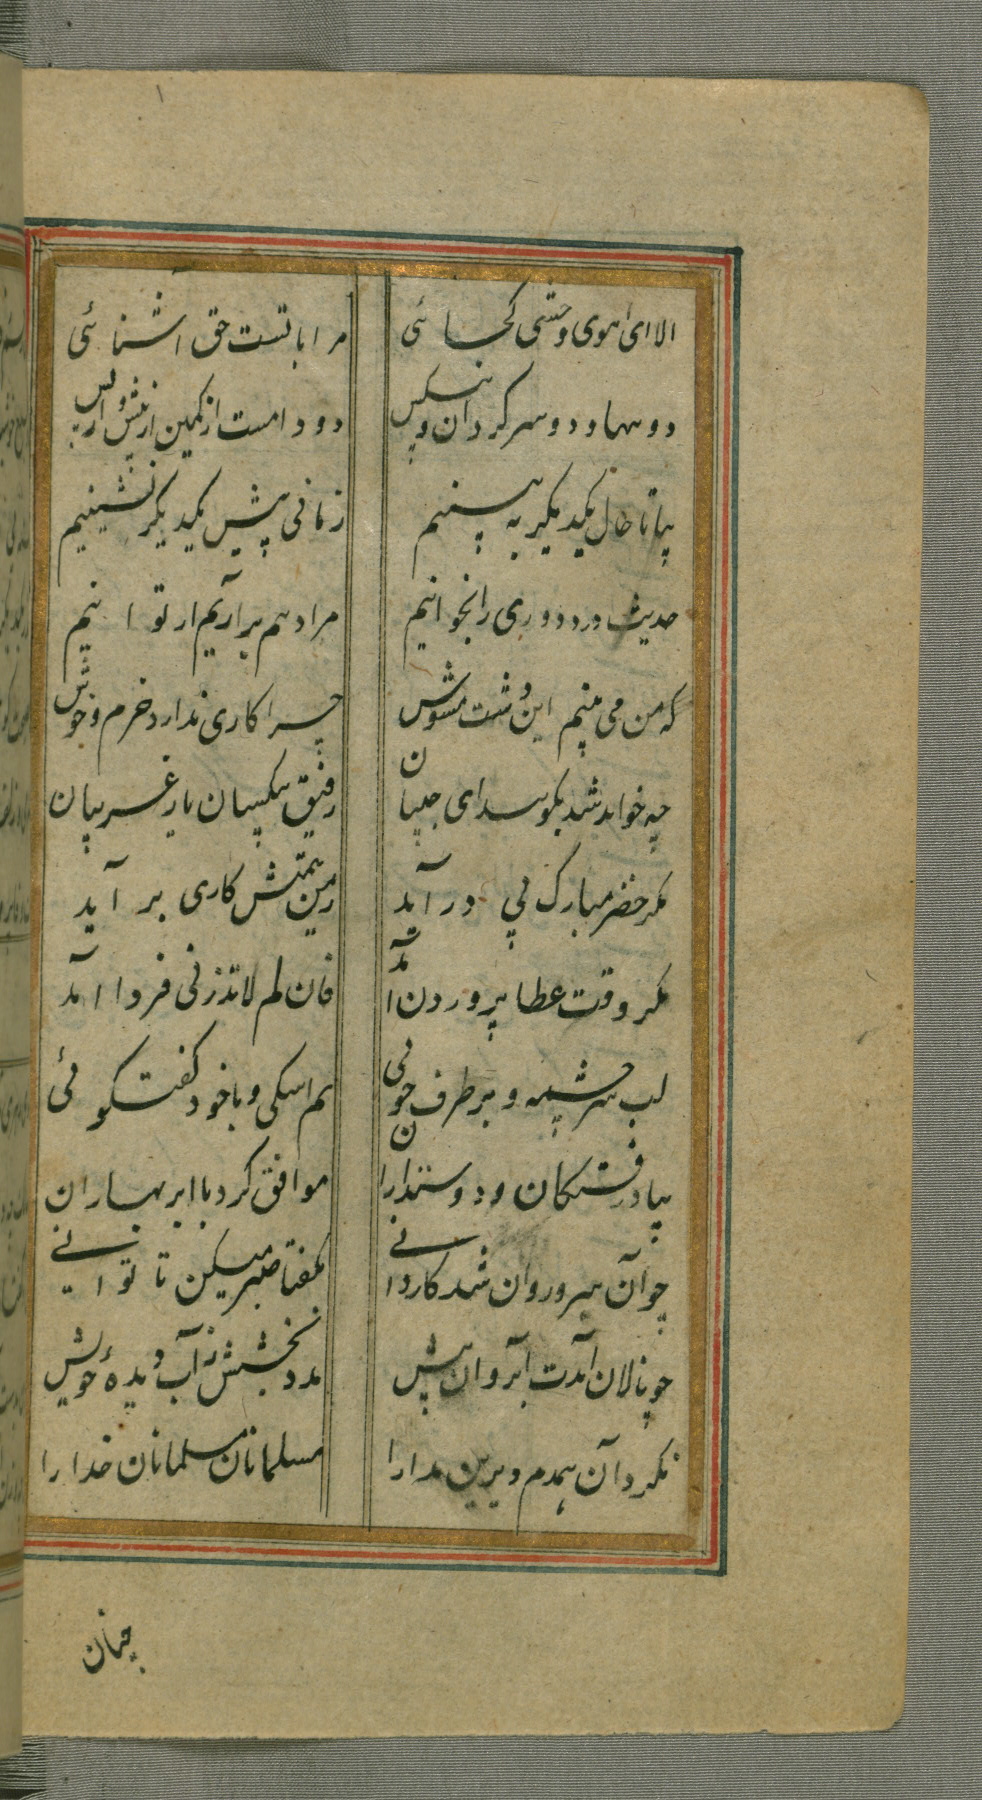 الا ای اهوی وحشی کجا ئی مرا با تست حق اشنا ئی
دو تنها و دو سرکردان و بیکس دو دامست از کمین از پیش و از پس
بیا تا حال یکدیکر به بینیم زمانی پیش یکدیکر نشینیم
حدیث درد دوری را بخوانیم مراد هم برآریم ار توانیم
که من می بینم این دشت مشوش چرا کاری ندارد خرم و خوش
چه خواهد شد بکوئید ای حبیبان رفیق بیکسان یار غریبان
مکر خضر مبارک پی درآید زمین همتش کاری برآید
مکر وقت عطا پروردن آمد فان لم لا تذرنی فردا آمد
لب سر چشمه و بر طرف جوئی نم اشکی و با خود کفتکوئی
بیاد رفتکان و دوستداران موافق کرد با ابر بهاران
چو آن سرو روان شد کاردانی بکفتا صبر میکن تا توانی
چو نالان آمدت آب روان پیش مدد بخشش ز آب دیدهٔ خویش
نکرد آن همدم دیرین مدارا مسلمانان مسلمانان خدا را
چنان